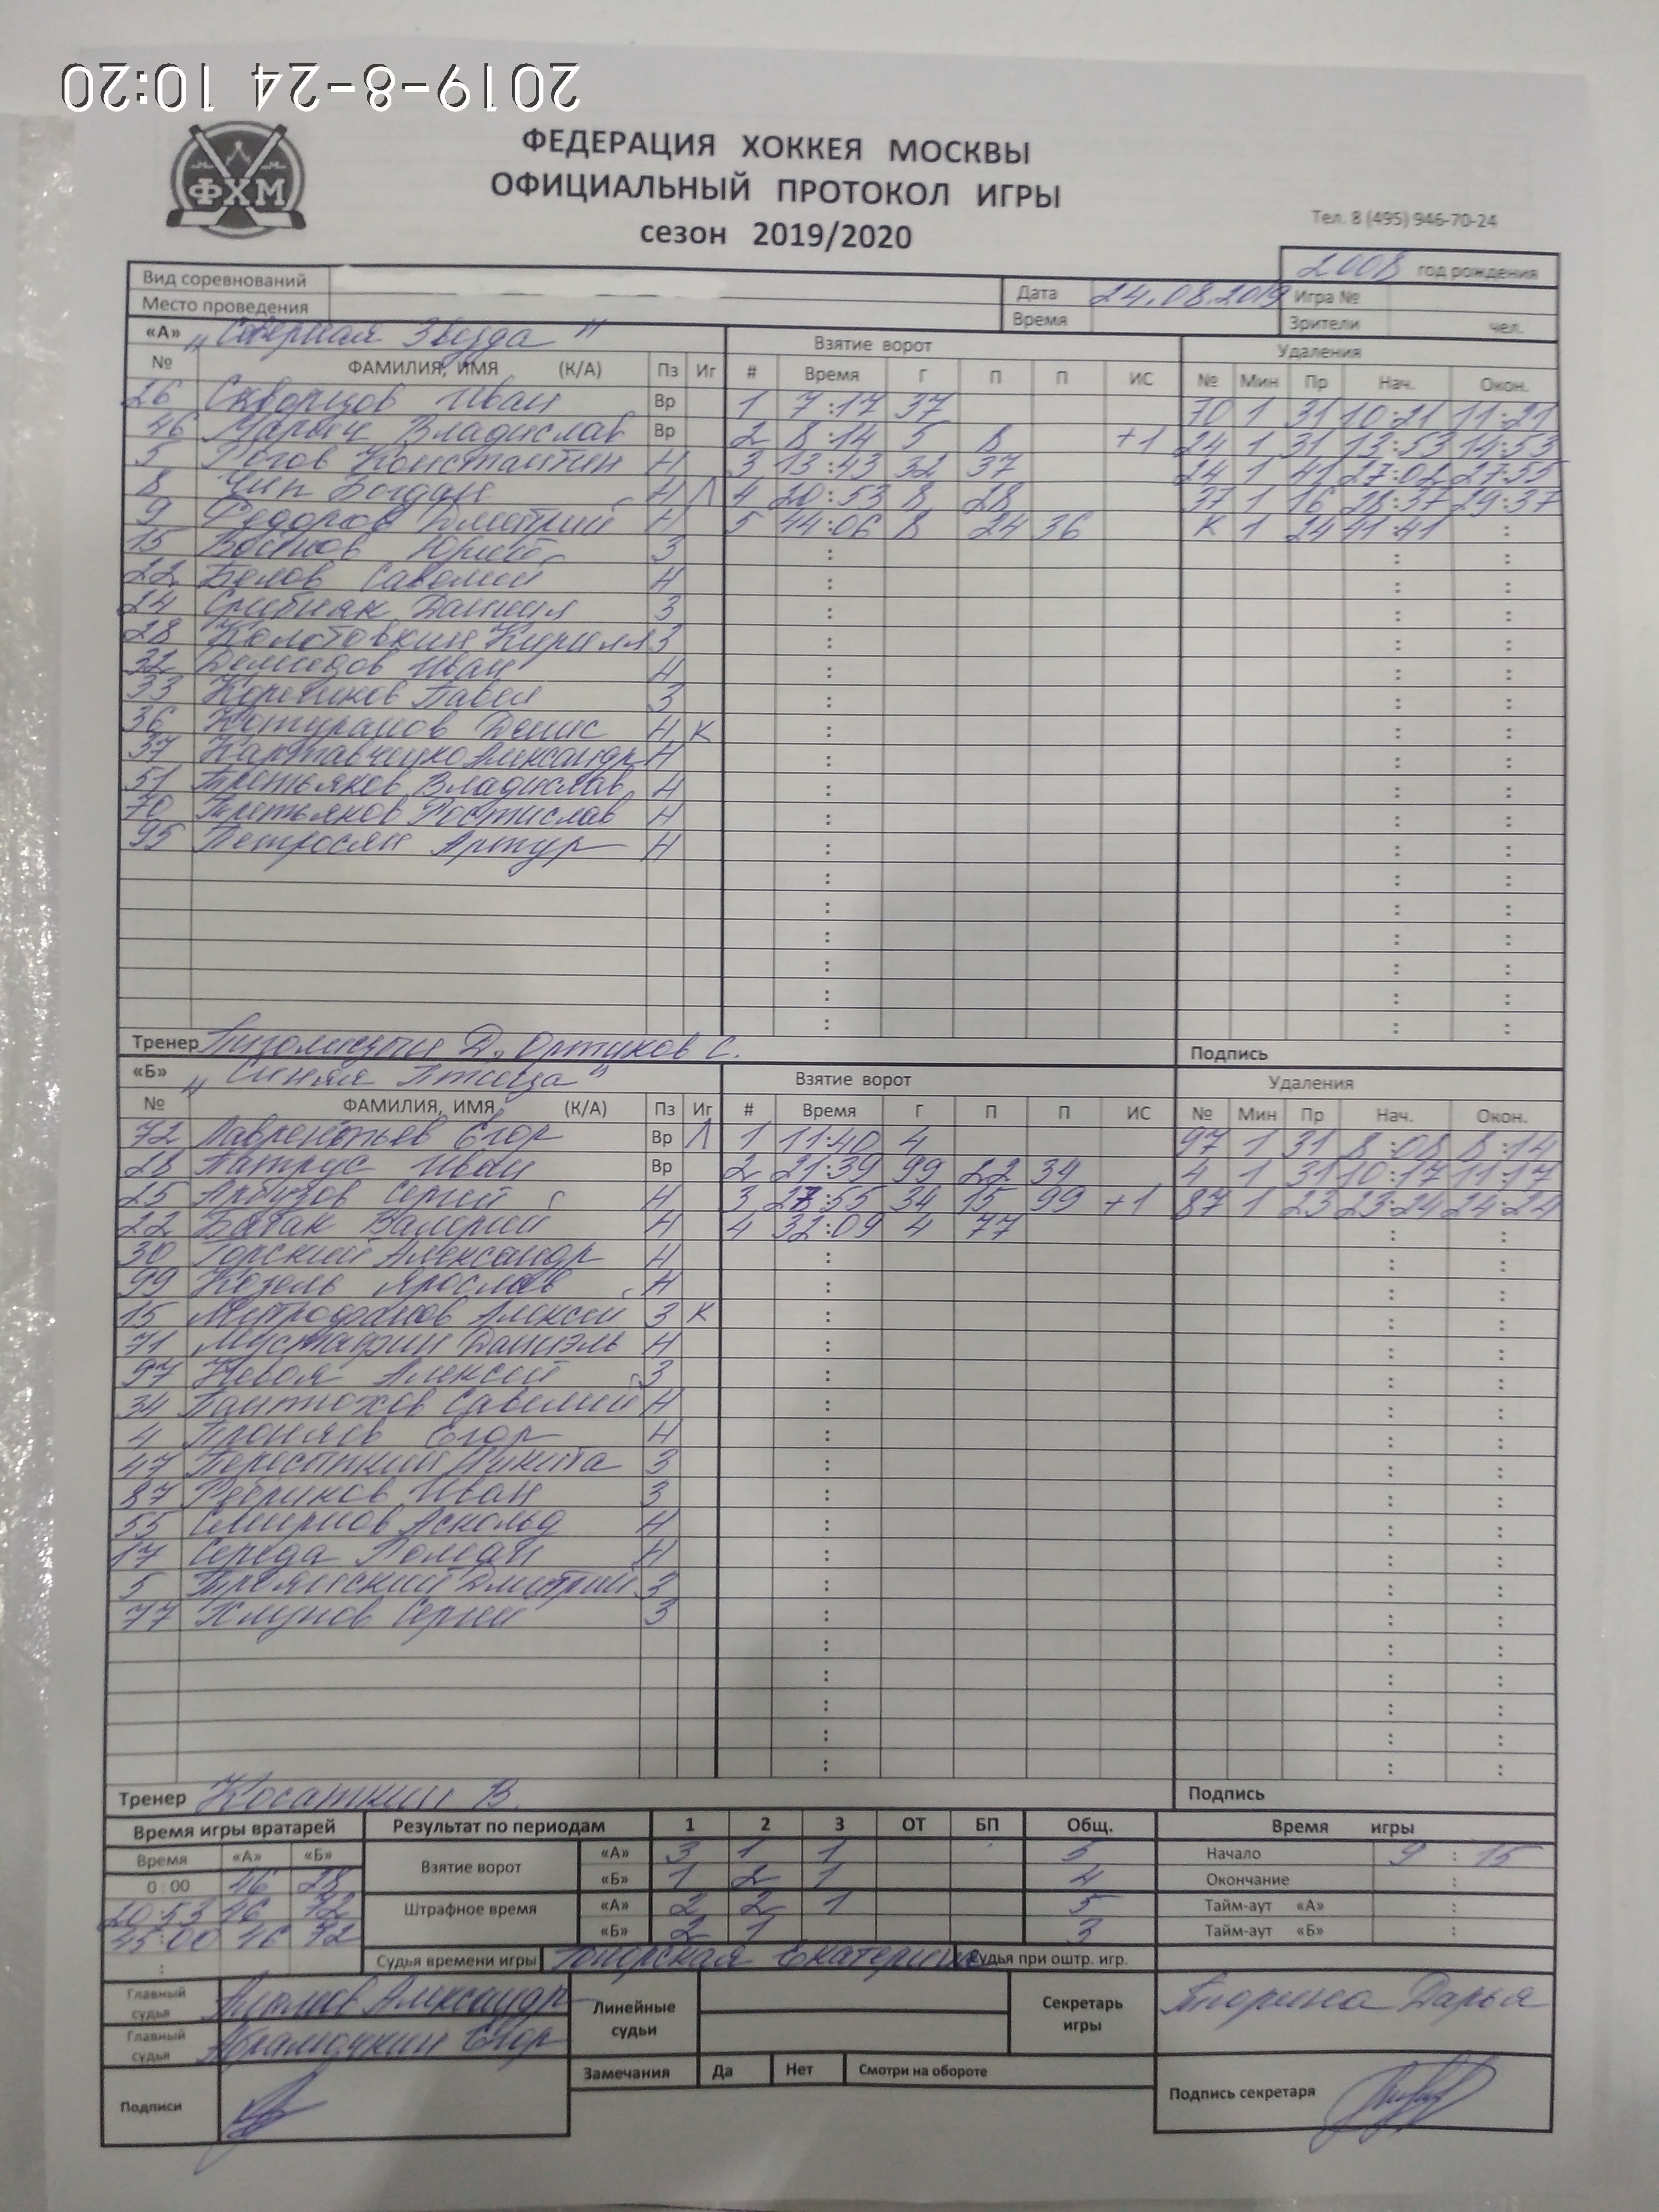 2019-8-24 10:20
ФЕДЕРАЦИЯ ХОККЕЯ МОСКВЫ
ФХМ
ОФИЦИАЛЬНЫЙ ПРОТОКОЛ ИГРЫ
сезон 2019/2020
Тел. 8 (495) 946-70-24
2008 год рождения
Вид соревнований
Дата 24.08.2019 Игра №
Место проведения
Время Зрители чел.
«А» "Северная Звезда" Взятие ворот Удаления
№ ФАМИЛИЯ, ИМЯ (К/А) Пз Иг # Время Г П П ИС № Мин Пр Нач. Окон.
26 Скворцов Иван Вр 1 7:17 37 70 1 31 10:21 11:21
46 Владислав Вр 2 8:14 5 8 +1 24 1 31 13:53 14:53
5 Рогов Константин Н 3 13:43 32 37 24 1 41 27:02 27:55
8 Чип Богдан Н Л 4 20:53 8 28 37 1 16 28:37 29:37
9 Федоров Дмитрий Н 5 44:06 8 24 36 К 1 24 41:41 :
15 Юрий З :
22 Белов Савелий Н :
24 Даниил З :
28 Колотовкин Кирилл З :
32 Демидов Иван Н :
33 Павел З :
36 Денис Н К :
37 Александр Н :
51 Третьяков Владислав Н :
70 Третьяков Ростислав Н :
95 Петросян Артур Н :
Тренер Д., Ортиков С. Подпись
«Б» "Синяя Птица" Взятие ворот Удаления
№ ФАМИЛИЯ, ИМЯ (К/А) Пз Иг # Время Г П П ИС № Мин Пр Нач. Окон.
72 Лаврентьев Егор Вр Л 1 11:40 4 97 1 31 8:08 8:14
28 Патрус Иван Вр 2 21:39 99 22 34 4 1 31 10:17 11:17
25 Арбузов Сергей Н 3 27:55 34 15 99 +1 87 1 23 23:24 24:24
22 Бабак Валерий Н 4 32:09 4 77 :
30 Горский Александр Н :
99 Козель Ярослав Н :
15 Митрофанов Алексей З К :
71 Мустафин Даниэль Н :
97 Невоя Алексей З :
34 Пантюхов Савелий Н :
4 Проняев Егор Н :
47 Никита З :
87 Рябинов Иван З :
55 Смирнов Аскольд Н :
17 Середа Н :
5 Троянский Дмитрий З :
77 Сергей З :
Тренер Косаткин В. Подпись
Время игры вратарей Результат по периодам 1 2 3 ОТ БП Общ. Время игры
Время «А» «Б» Взятие ворот «А» 3 1 1 5 Начало 9 : 15
0:00 46 28 «Б» 1 2 1 4 Окончание :
20:53 46 72 Штрафное время «А» 2 2 1 5 Тайм-аут «А» :
45:00 46 72 «Б» 2 1 3 Тайм-аут «Б» :
: Судья времени игры Екатерина Судья при оштр. игр.
Главный судья Александр Линейные судьи Секретарь игры Тюрина Дарья
Главный судья Абрамочкин Егор
Замечания Да Нет Смотри на обороте
Подписи Подпись секретаря